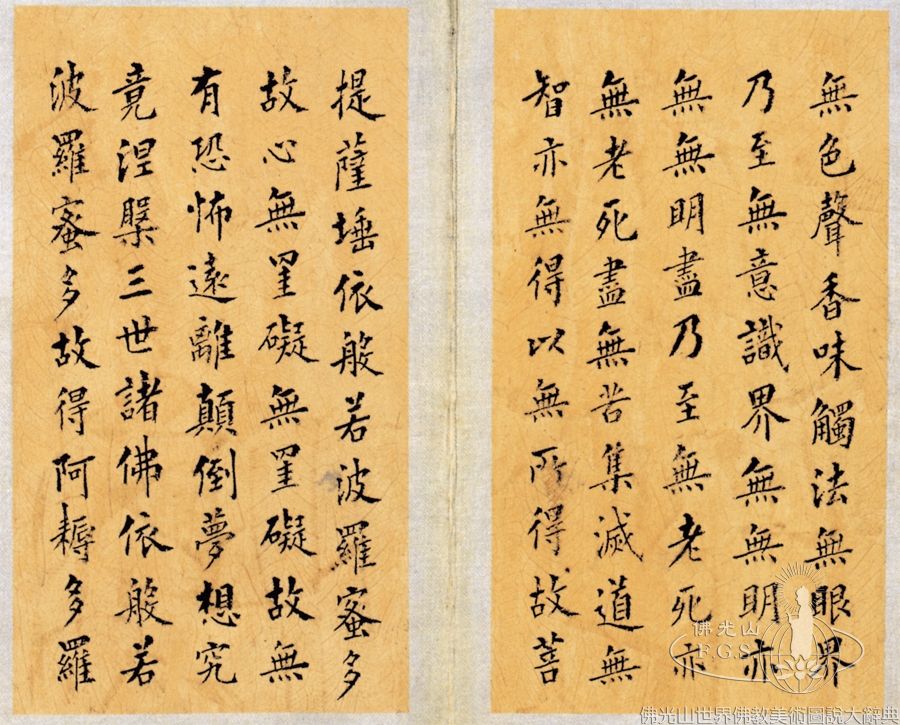 無色聲香味觸法無眼界
乃至無意識界無無明亦
無無明盡乃至無老死亦
無老死盡無苦集滅道無
智亦無得以無所得故菩
提薩埵依般若波羅蜜多
故心無罣礙無罣礙故無
有恐怖遠離顛倒夢想究
竟涅槃三世諸佛依般若
波羅蜜多故得阿耨多羅
佛光山
F.G.S
佛光山世界佛教美術圖說大辭典